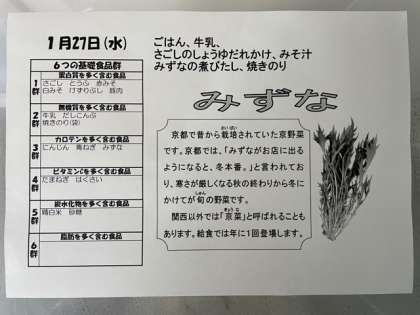 1月27日(水)
ごはん、牛乳、
さごしのしょうゆだれかけ、みそ汁
みずなの煮びたし、焼きのり
6つの基礎食品群
1群
蛋白質を多く含む食品
さごし とうふ 赤みそ
白みそ けずりぶし 豚肉
2群
無機質を多く含む食品
牛乳 だしこんぶ
焼きのり(袋)
3群
カロテンを多く含む食品
にんじん 青ねぎ みずな
4群
ビタミンCを多く含む食品
たまねぎ はくさい
5群
炭水化物を多く含む食品
精白米 砂糖
6群
脂肪を多く含む食品
みずな
京都で昔から栽培されていた京野菜
さいばい
です。京都では、「みずながお店に出る
ようになると、冬本番。」と言われてお
り、寒さが厳しくなる秋の終わりから冬に
かけてが旬の野菜です。
しゅん
関西以外では「京菜」と呼ばれることも
きょうな
あります。給食では年に1回登場します。